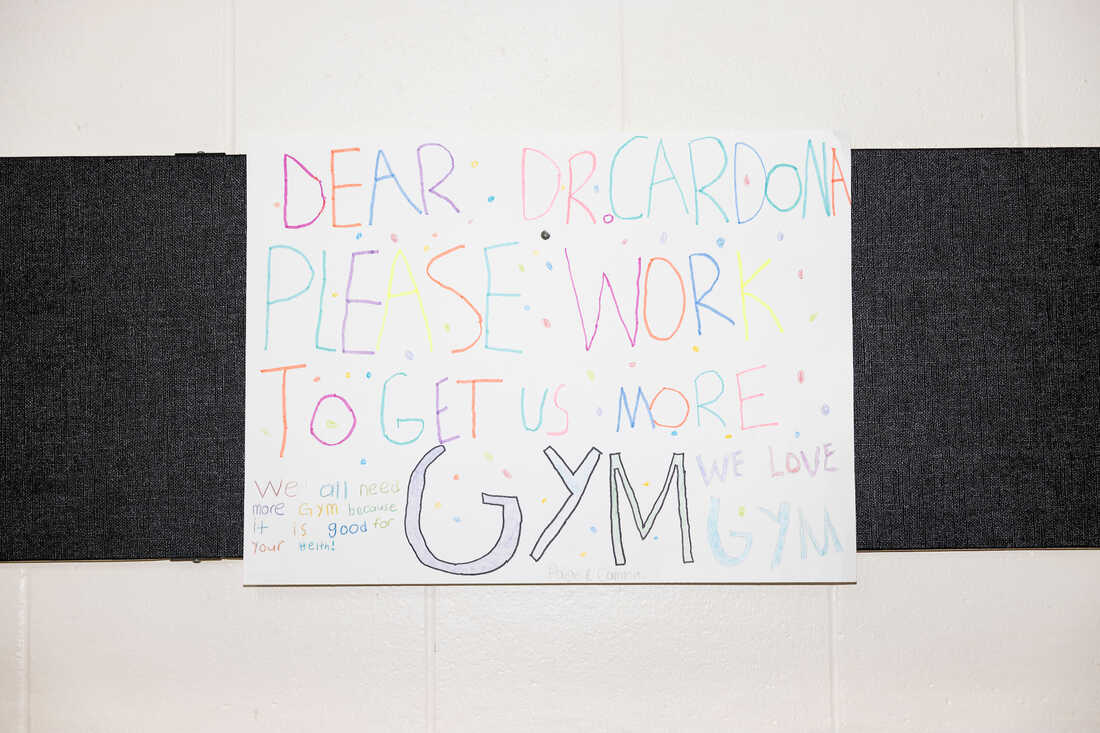 DEAR DR. CARDONA
PLEASE WORK
TO GET US MORE
GYM
WE LOVE
GYM
We all need
more GYM because
it is good for
your Helth!
Paige &